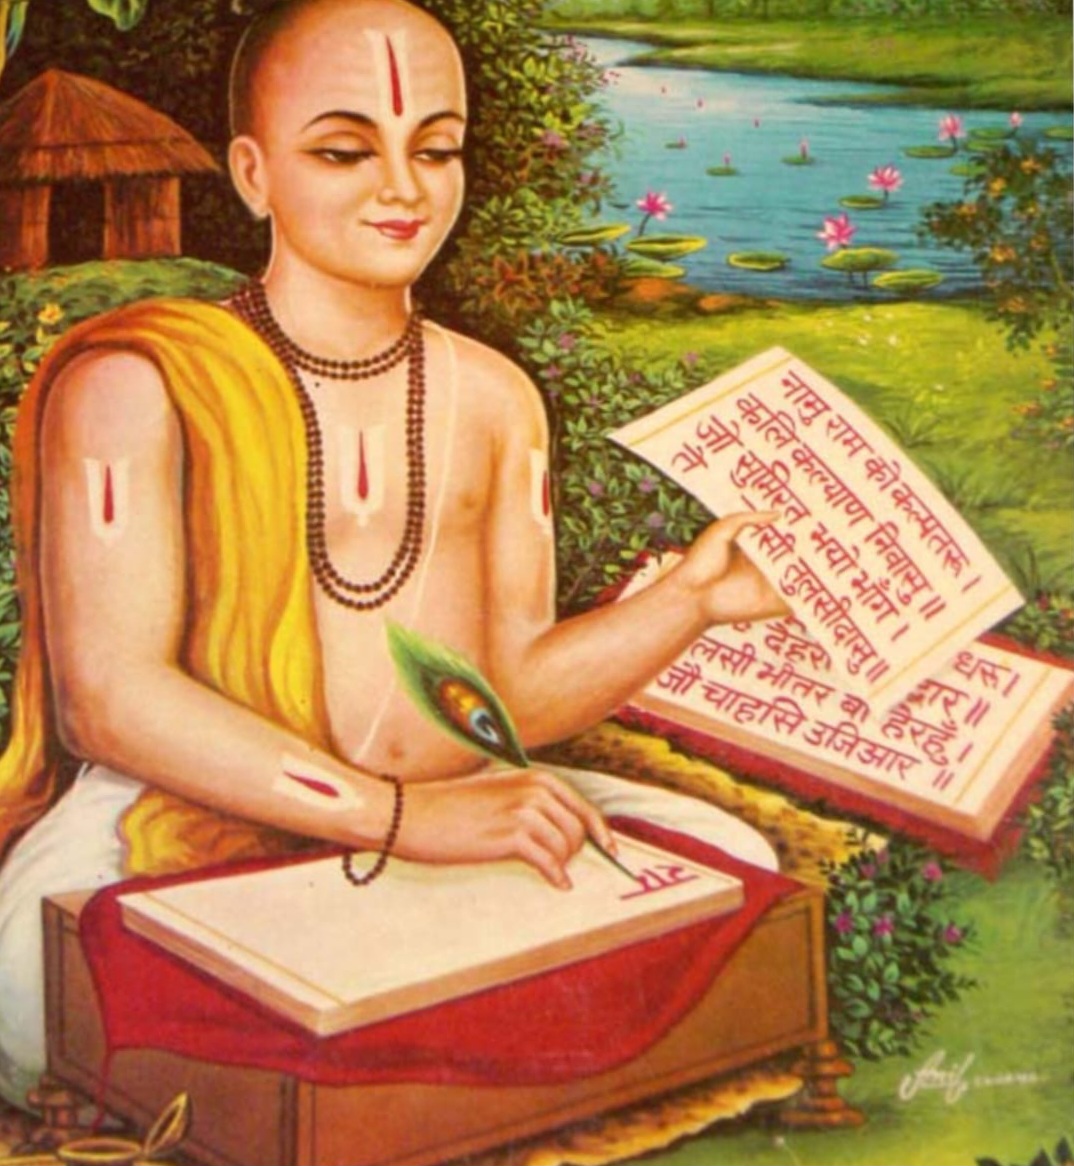 नामु राम को कल्पतरू।
कलि कल्याण निवासु॥
जो सुमिरत भयो भाँग।
तें तुलसीदासु॥
धरू।
देहरी
भीतर बाहेरहुँ।
जौ चाहसि उजिआर॥